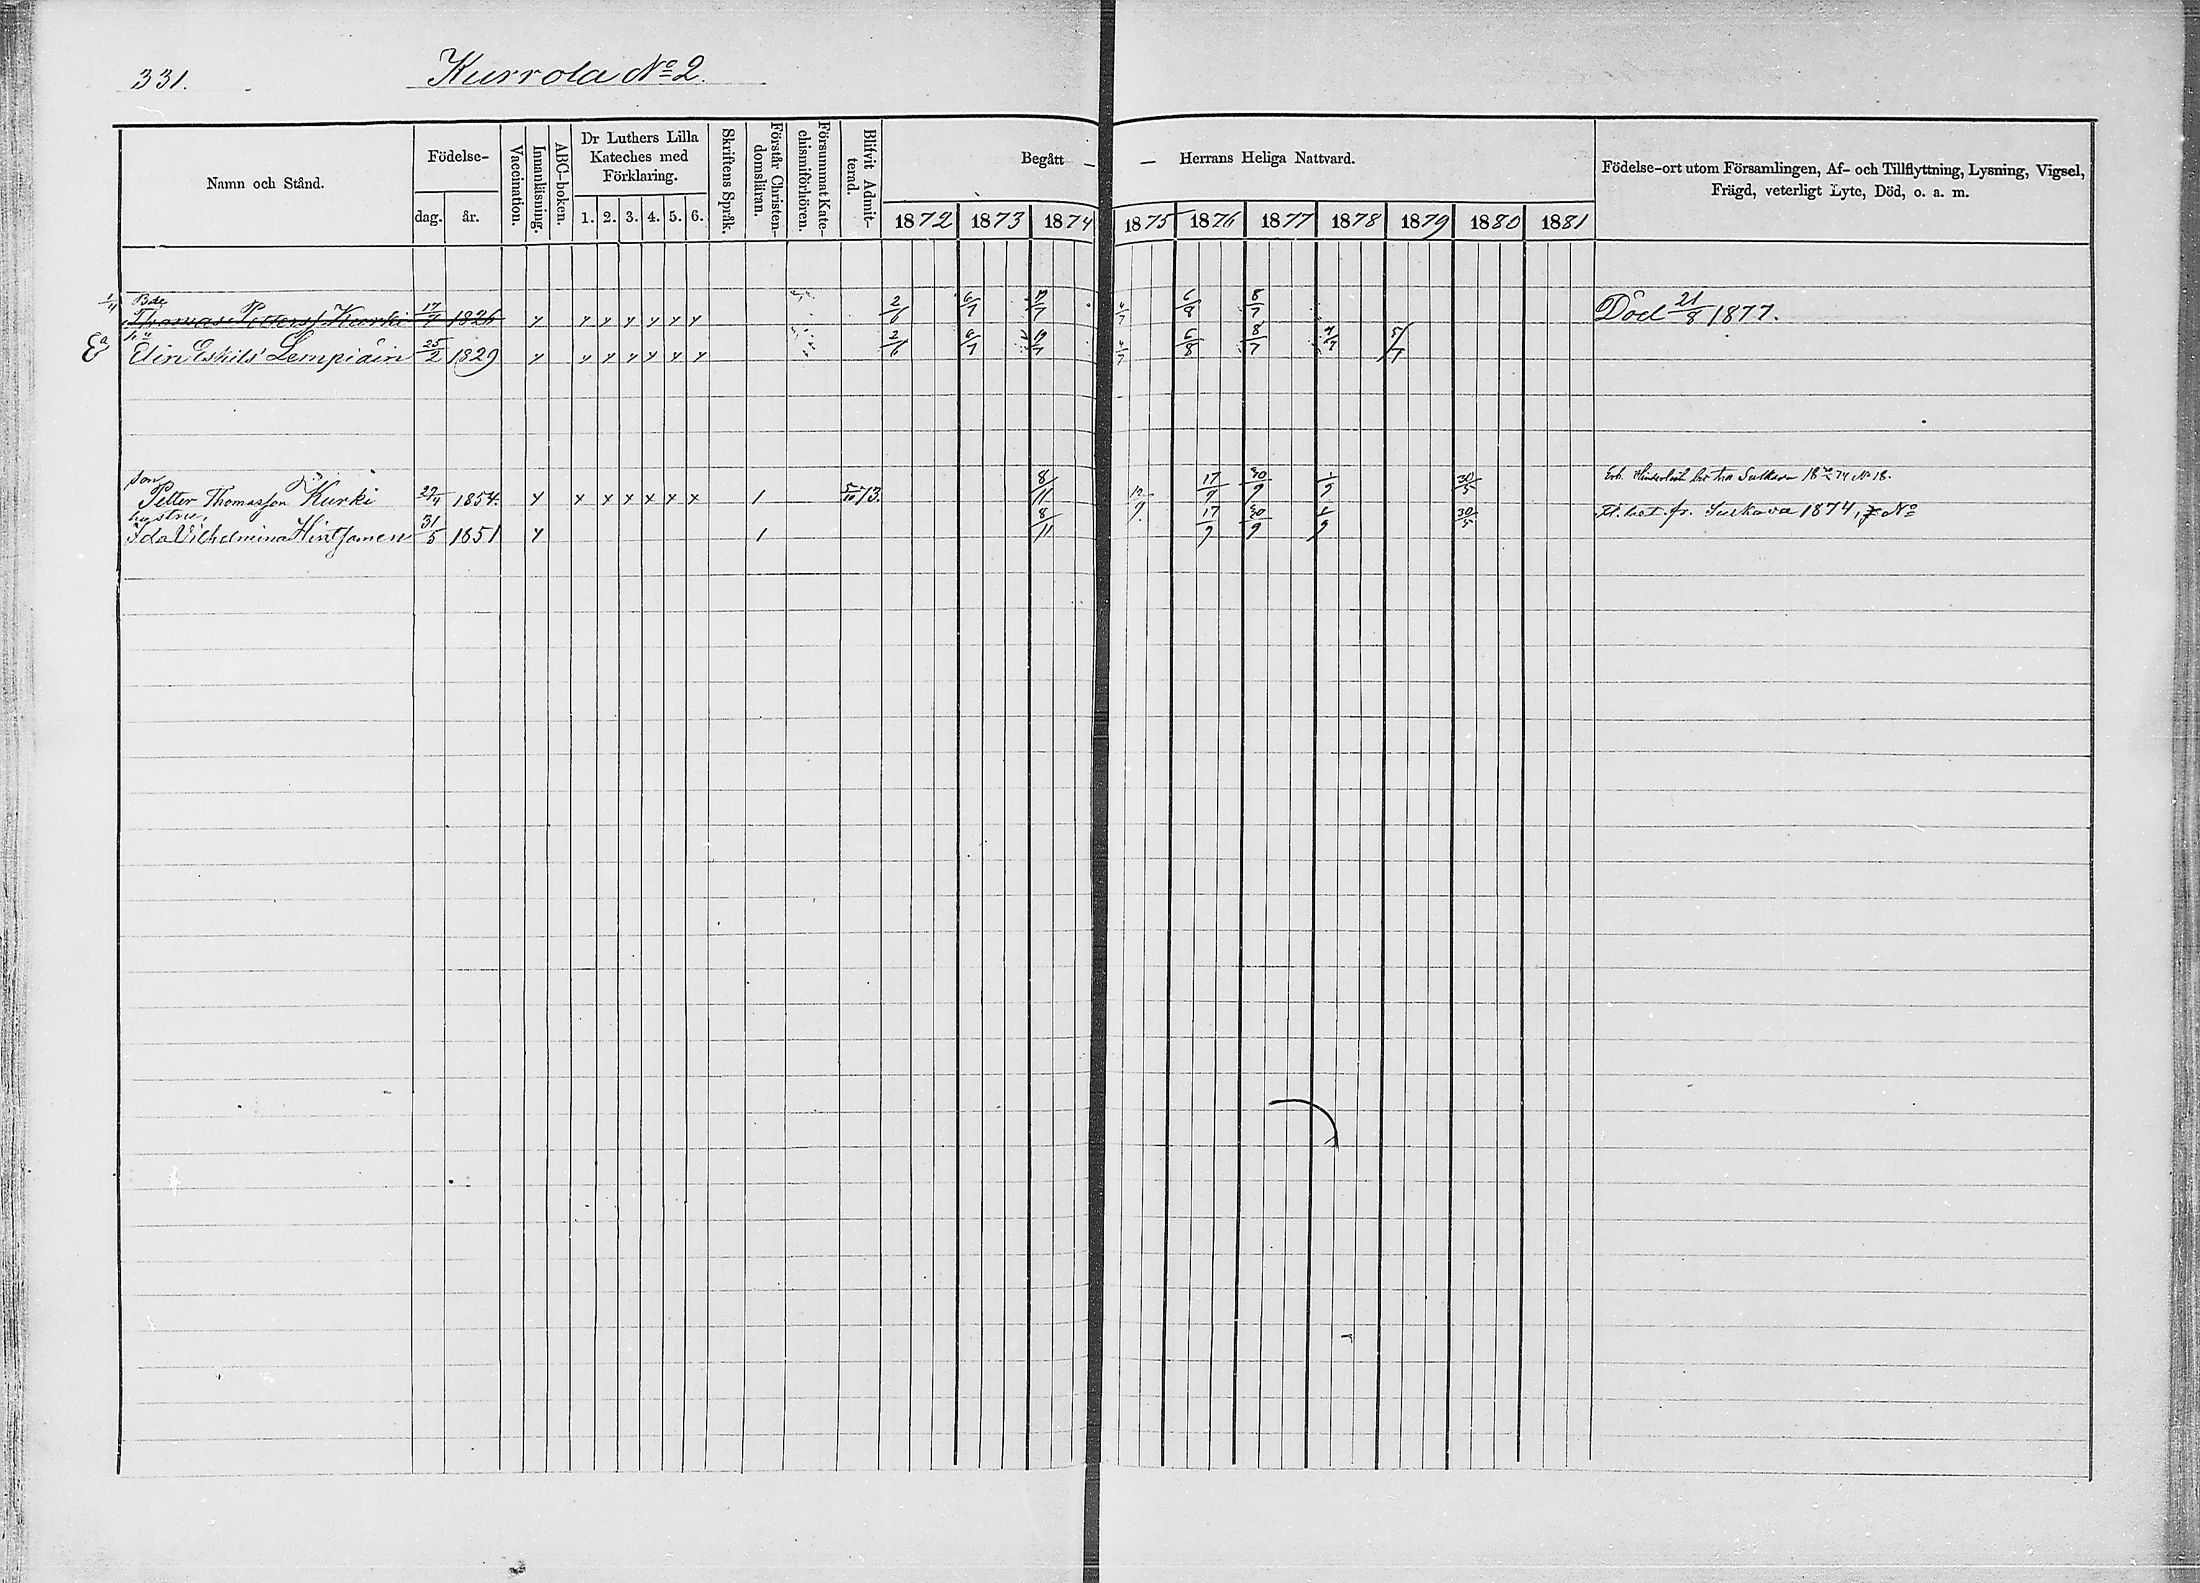 331.
Kurrola No 2.
Namn och Stånd.
Födelse-
dag.
år.
Vaccination.
Innanläsning.
ABC-boken.
Dr Luthers Lilla
Kateches med
Förklaring.
1. 2. 3. 4. 5. 6.
Skriftens Språk.
Förstår Christen-
domsläran.
Försummat Kate-
chismiförhören.
Blifvit Admit-
terad.
Begått — — Herrans Heliga Nattvard.
1872 1873 1874 1875 1876 1877 1878 1879 1880 1881
Födelse-ort utom Församlingen, Af- och Tillflyttning, Lysning, Vigsel,
Frägd, veterligt Lyte, Död, o. a. m.
Thomas Petterss. Kurki 17/7 1826 y y y y y y y 2/6 6/7 6/8 8/7 Död 21/8 1877.
Elin Eskilsd Lempiäin 25/2 1829 y y y y y y y 2/6 6/7 6/8 8/7 5/7
son
Petter Thomasson Kurki 1854. y x x x x x x 1 5/10 73. 8/11 17/9 30/9 1/9 30/5 No 18.
hustru,
Ida Vilhelmina Hintsanen 31/5 1851 y 1 8/11 17/9 30/9 1/9 30/5 fr. Sulkava 1874, No